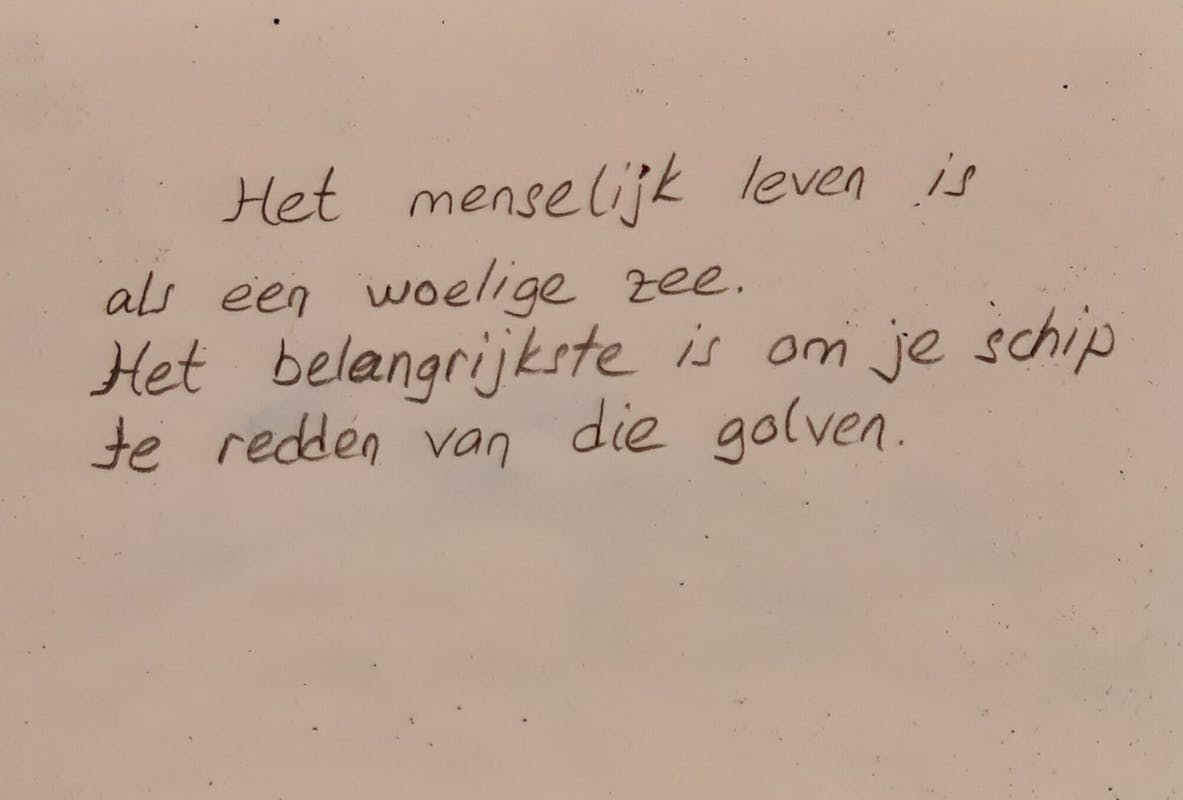 Het menselijk leven is
als een woelige zee.
Het belangrijkste is om je schip
te redden van die golven.